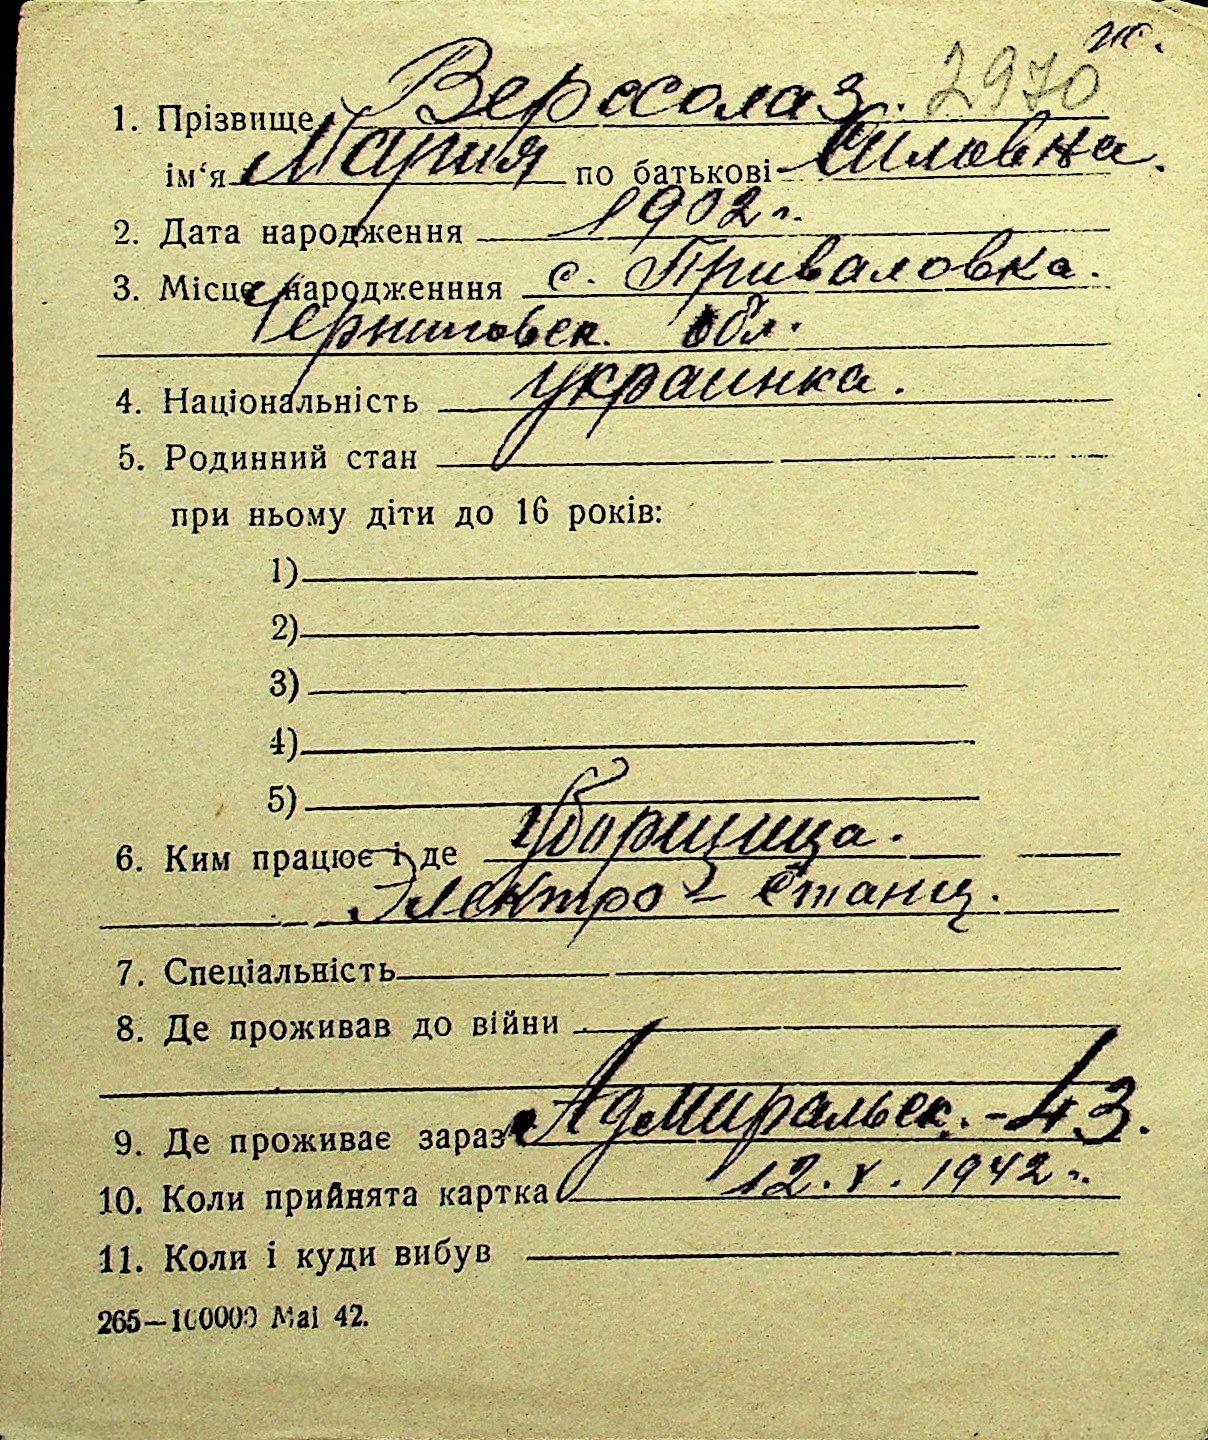 ж.
2970
1. Прізвище Вересолаз.
ім‘я Мария по батькові Силовна.
2. Дата народження 1902 г.
3. Місце народженння с. Приваловка.
Черниговск. обл.
4. Національність украинка.
5. Родинний стан
при ньому діти до 16 років:
1)
2)
3)
4)
5)
6. Ким працює і де Уборщица.
Электро-Станц.
7. Спеціальність
8. Де проживав до війни
9. Де проживає зараз Адмиральск. - 43.
10. Коли прийнята картка 12. V. 1942 г.
11. Коли і куди вибув
265—100000 Маі 42.